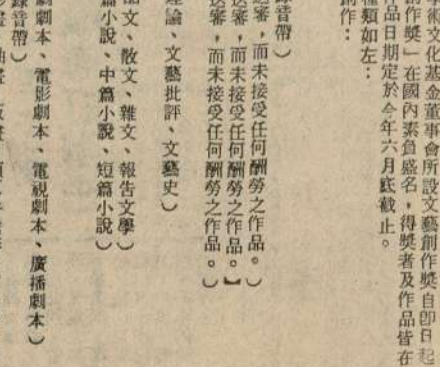 學術文化基金董事會所設文藝創作獎自即日起
創作獎」在國內素負盛名，得獎者及作品皆在
作品日期定於今年六月底截止。
種類如左：
創作：
錄音帶）
送審，而未接受任何酬勞之作品。）
送審，而未接受任何酬勞之作品。】
送審，而未接受任何酬勞之作品。）
理論、文藝批評、文藝史）
品文、散文、雜文、報告文學）
篇小說、中篇小說、短篇小說）
劇劇本、電影劇本、電視劇本、廣播劇本）
錄音帶）